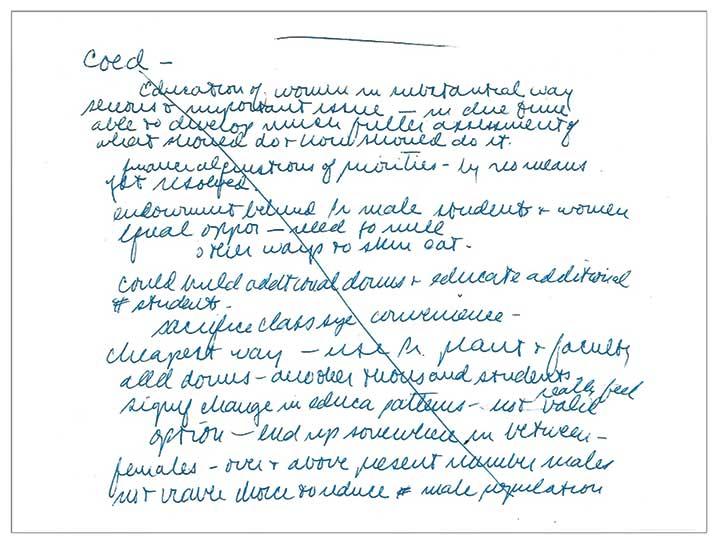 Coed -
Education of women in substantial way
serious & important issue - in due time
able to develop much fuller assessment of
what should do & how should do it.
financial questions of priorities - by no means
yet resolved.
endowment behind Pr male students & women
equal oppor - need to
other ways to skin cat.
could build additional dorms & educate additional
# students.
sacrifice class size convenience -
cheapest way - use Pr. plant & faculty
add dorms - another thousand students -
really feel
signif change in educa patterns - not valid
option - end up somewhere in between -
females - over & above present number males
not viable choice to reduce # male population